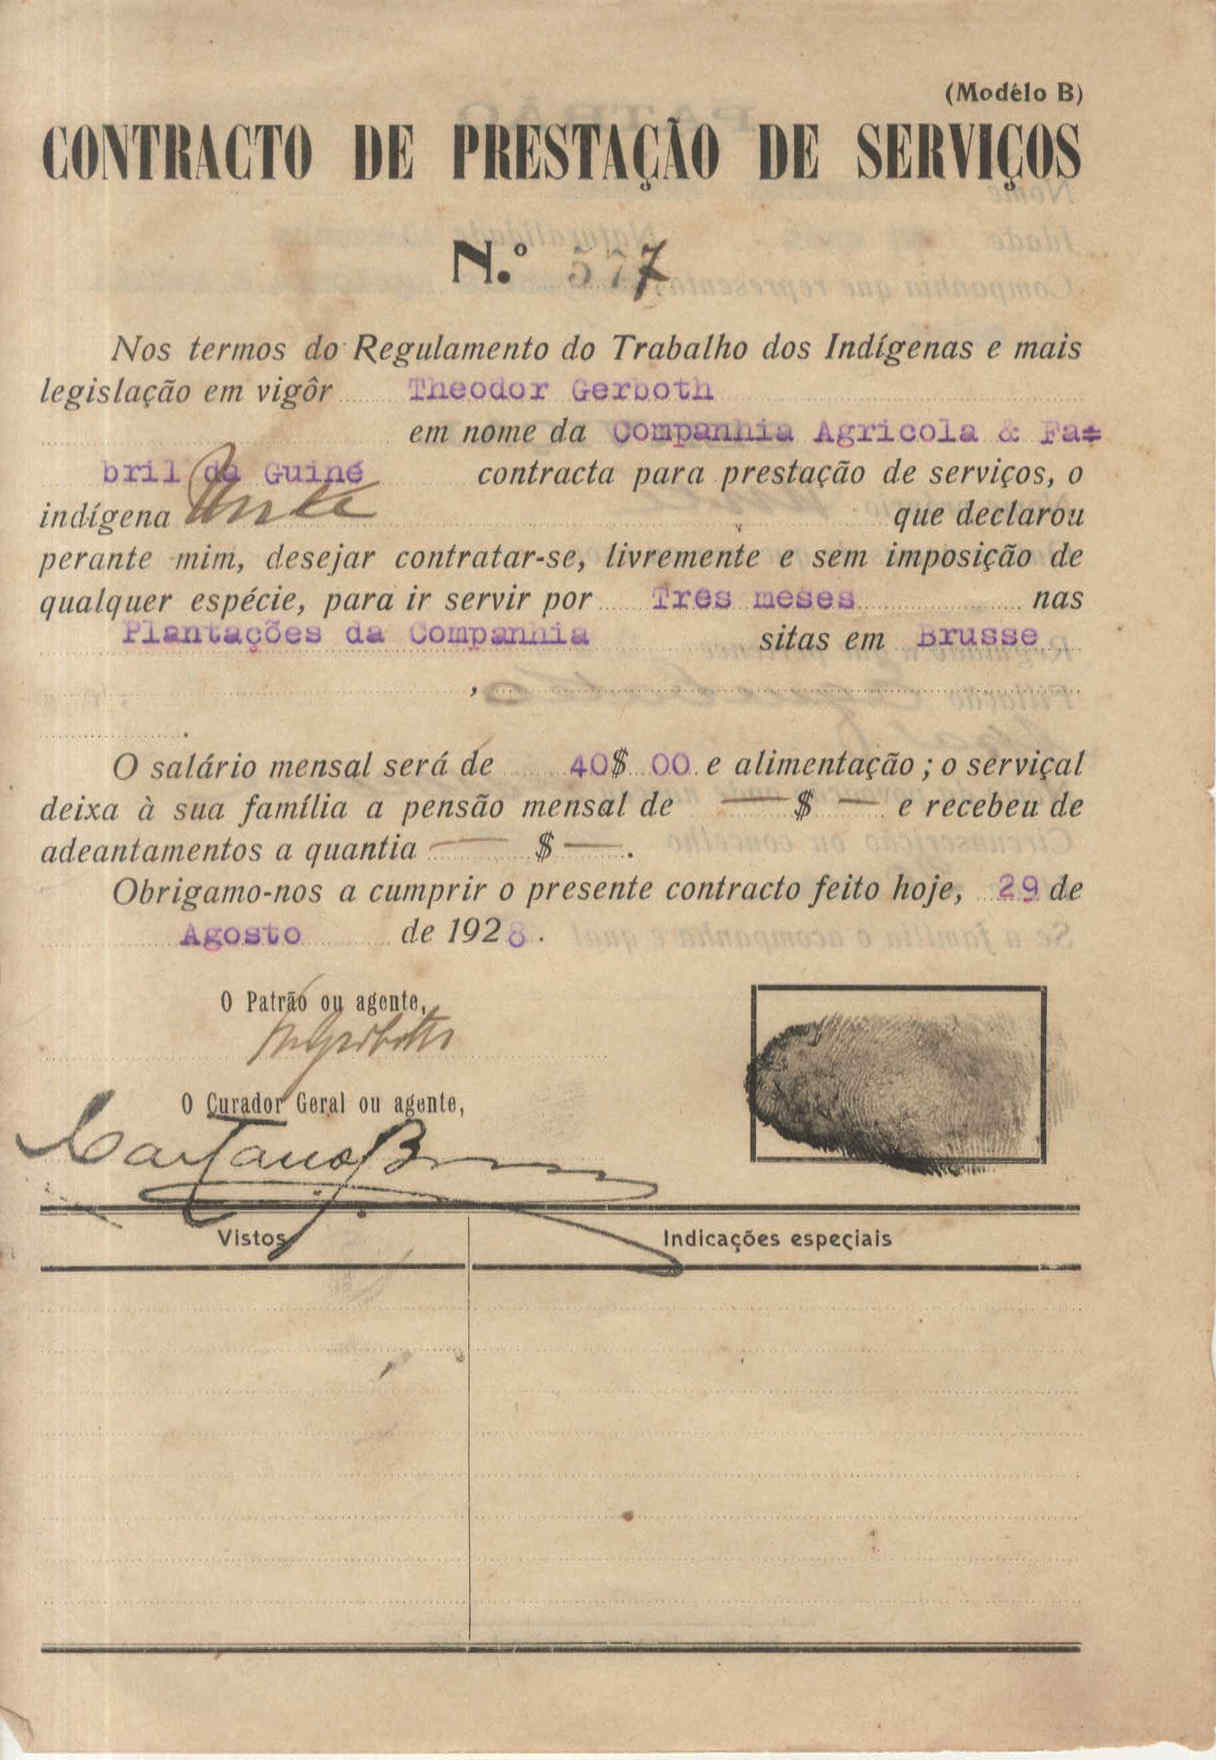 (Modêlo B)
CONTRACTO DE PRESTAÇÃO DE SERVIÇOS
N.º 577
Nos termos do Regulamento do Trabalho dos Indígenas e mais
legislação em vigôr Theodor Gerboth
em nome da Companhia Agricola & Fa=
bril da Guiné contracta para prestação de serviços, o
indígena que declarou
perante mim, desejar contratar-se, livremente e sem imposição de
qualquer espécie, para ir servir por Tres meses nas
Plantações da Companhia sitas em Brusse
,
.
O salário mensal será de 40$00 e alimentação; o serviçal
deixa à sua família a pensão mensal de — $ — e recebeu de
adeantamentos a quantia — $ — .
Obrigamo-nos a cumprir o presente contracto feito hoje, 29 de
Agosto de 1928.
O Patrão ou agente,
O Curador Geral ou agente,
Vistos Indicações especiais